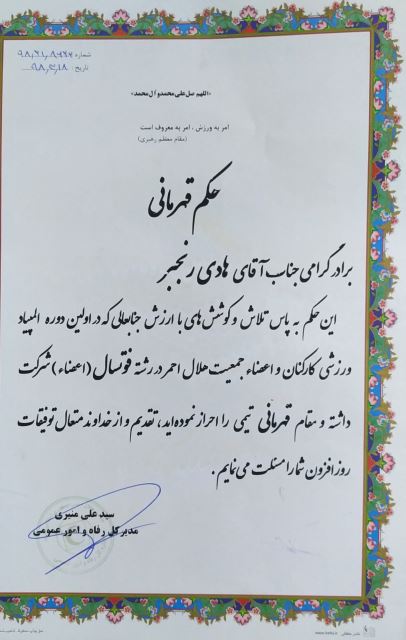 شماره ۹۸،۲۱،۸۹۷۷
تاریخ ۹۸،۴،۱۸
«اللهم صل علی محمد و آل محمد»
امر به ورزش، امر به معروف است
(مقام معظم رهبری)
حکم قهرمانی
برادر گرامی جناب آقای هادی رنجبر
این حکم به پاس تلاش و کوشش های با ارزش جنابعالی که در اولین دوره المپیاد
ورزشی کارکنان و اعضاء جمعیت هلال احمر در رشته فوتسال (اعضاء) شرکت
داشته و مقام قهرمانی تیمی را احراز نموده اید، تقدیم و از خداوند متعال توفیقات
روز افزون شما را مسئلت می نمایم.
سید علی منیری
مدیر کل رفاه و امور عمومی